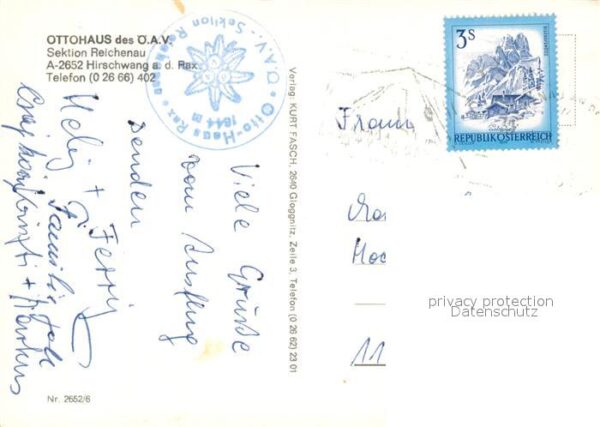 OTTOHAUS des Ö.A.V.
Sektion Reichenau
A-2652 Hirschwang a. d. Rax
Telefon (0 26 66) 402
Ö.A.V. - Sektion
Otto-Haus Rax
1644 m
Viele Grüße
vom Ausflug
senden
+ Ferry
Familie
Nr. 2652/6
Verlag: KURT FASCH, 2640 Gloggnitz, Zeile 3, Telefon (0 26 62) 23 01
3S
REPUBLIK ÖSTERREICH
Frau
11
privacy protection
Datenschutz